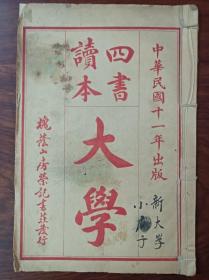 中華民國十一年出版
四書
讀本
大學
槐蔭山房榮記書莊發行
新大学